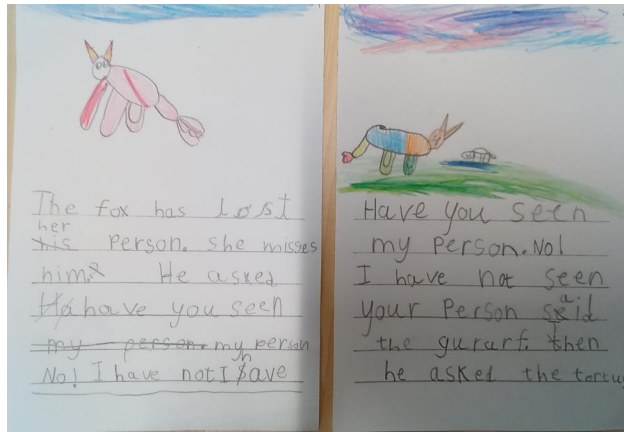 The fox has Lost
her
his Person. She misses
him. He asked
Ha have you seen
my person. my person
No! I have not I have
Have you seen
my Person. No!
I have not seen
your Person said
the gurarf. then
he asked the tortu